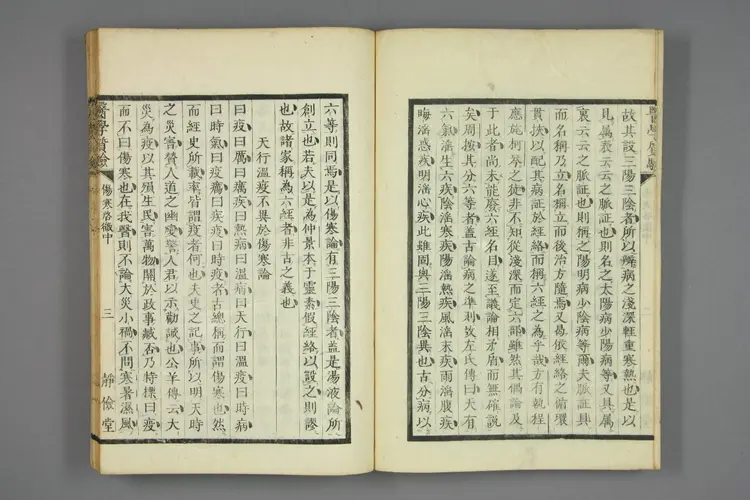 故其設三陽三陰者所以辨病之淺深輕重寒熱也是以
見屬表云云之脈證也則名之太陽病少陽病等又具屬
裏云云之脈證也則稱之陽明病少陰病等爾夫脈證具
而名稱乃立名稱立而後治方隨焉又曷依經絡之循環
貫挾以配其病證於經絡而稱六經之為乎哉方有執程
應旄柯琴之徒非不知從淺深而定六部雖然其偶論及
于此者尚未能廢六經名目遂至議論相矛盾而無確說
矣周按其分六等者蓋古論病之準則故左氏傳曰天有
六氣淫生六疾陰淫寒疾陽淫熱疾風淫末疾雨淫腹疾
晦淫惑疾明淫心疾此雖固與三陽三陰異也古分病以
六等則同焉是以傷寒論有三陽三陰者蓋是湯液論所
創立也若夫以是為仲景本于靈素假經絡以設之則謬
也故諸家稱為六經者非古之義也
天行溫疫不異於傷寒論
曰疫曰厲曰癘疾曰熱病曰溫病曰天行曰溫疫曰時病
曰時氣曰疫癘曰疾疫曰時疫者古總稱而謂傷寒也然
而經史所載率皆謂疫者何也夫史之記事所以明天時
之災害贊人道之幽愛警人君以示勸誡也公羊傳云大
災為疫以其殞生民害萬物關於政事臧否乃特標曰疫
而不曰傷寒也在我醫則不論大災小禍不問寒暑濕風
醫學質驗
傷寒啓微中
三
靜儉堂